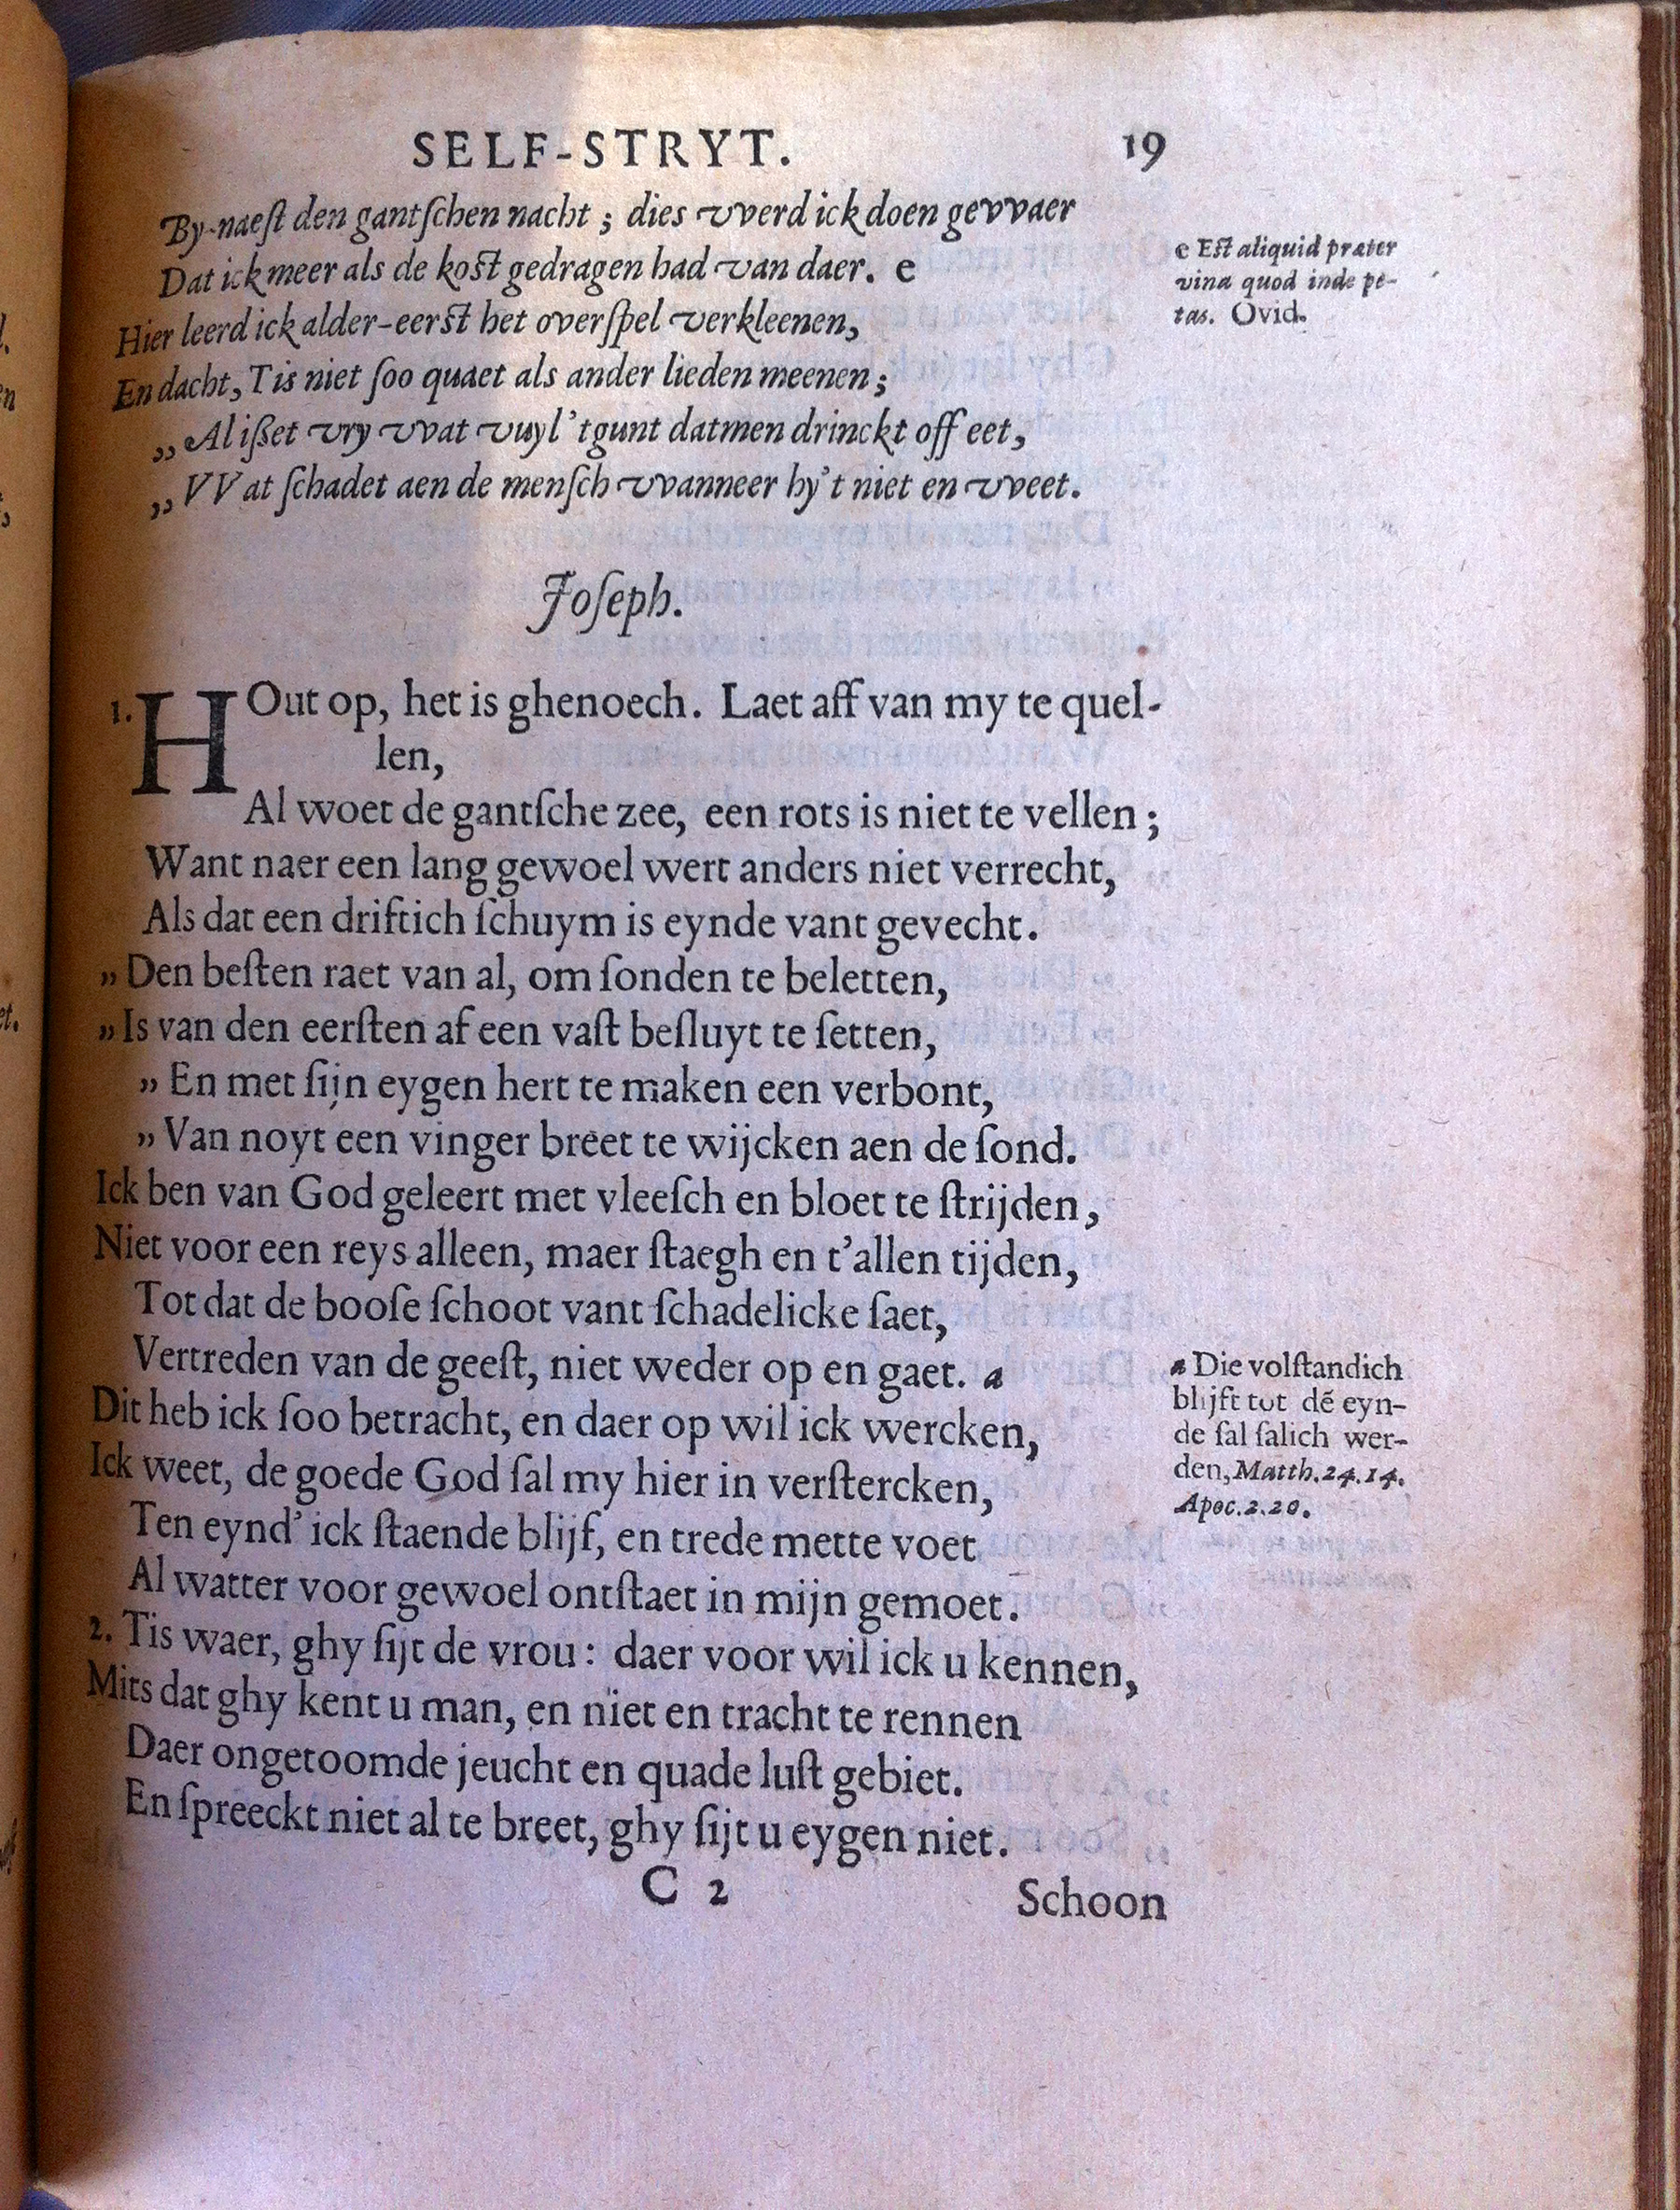 SELF-STRYT. 19
By-naeſt den gantſchen nacht ; dies vverd ick doen gevvaer
Dat ick meer als de koſt gedragen had van daer. e
e Eſt aliquid præter
vina quod inde pe-
tas. Ovid.
Hier leerd ick alder-eerſt het overſpel verkleenen,
En dacht, Tis niet ſoo quaet als ander lieden meenen ;
„ Al iſſet vry vvat vuyl 'tgunt datmen drinckt off eet,
„ VVat ſchadet aen de menſch vvanneer hy't niet en vveet.
Joſeph.
1. HOut op, het is ghenoech. Laet aff van my te quel-
len,
Al woet de gantſche zee, een rots is niet te vellen ;
Want naer een lang gewoel wert anders niet verrecht,
Als dat een driftich ſchuym is eynde vant gevecht.
„ Den beſten raet van al, om ſonden te beletten,
„ Is van den eerſten af een vaſt beſluyt te ſetten,
„ En met ſijn eygen hert te maken een verbont,
„ Van noyt een vinger breet te wijcken aen de ſond.
Ick ben van God geleert met vleeſch en bloet te ſtrijden,
Niet voor een reys alleen, maer ſtaegh en t'allen tijden,
Tot dat de booſe ſchoot vant ſchadelicke ſaet,
Vertreden van de geeſt, niet weder op en gaet. a
a Die volſtandich
blijft tot dē eyn-
de ſal ſalich wer-
den, Matth. 24. 14.
Apoc. 2. 20.
Dit heb ick ſoo betracht, en daer op wil ick wercken,
Ick weet, de goede God ſal my hier in verſtercken,
Ten eynd' ick ſtaende blijf, en trede mette voet
Al watter voor gewoel ontſtaet in mijn gemoet.
2. Tis waer, ghy ſijt de vrou : daer voor wil ick u kennen,
Mits dat ghy kent u man, en niet en tracht te rennen
Daer ongetoomde jeucht en quade luſt gebiet.
En ſpreeckt niet al te breet, ghy ſijt u eygen niet.
C 2 Schoon